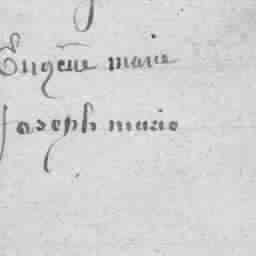 Eugène marie
Joseph marie